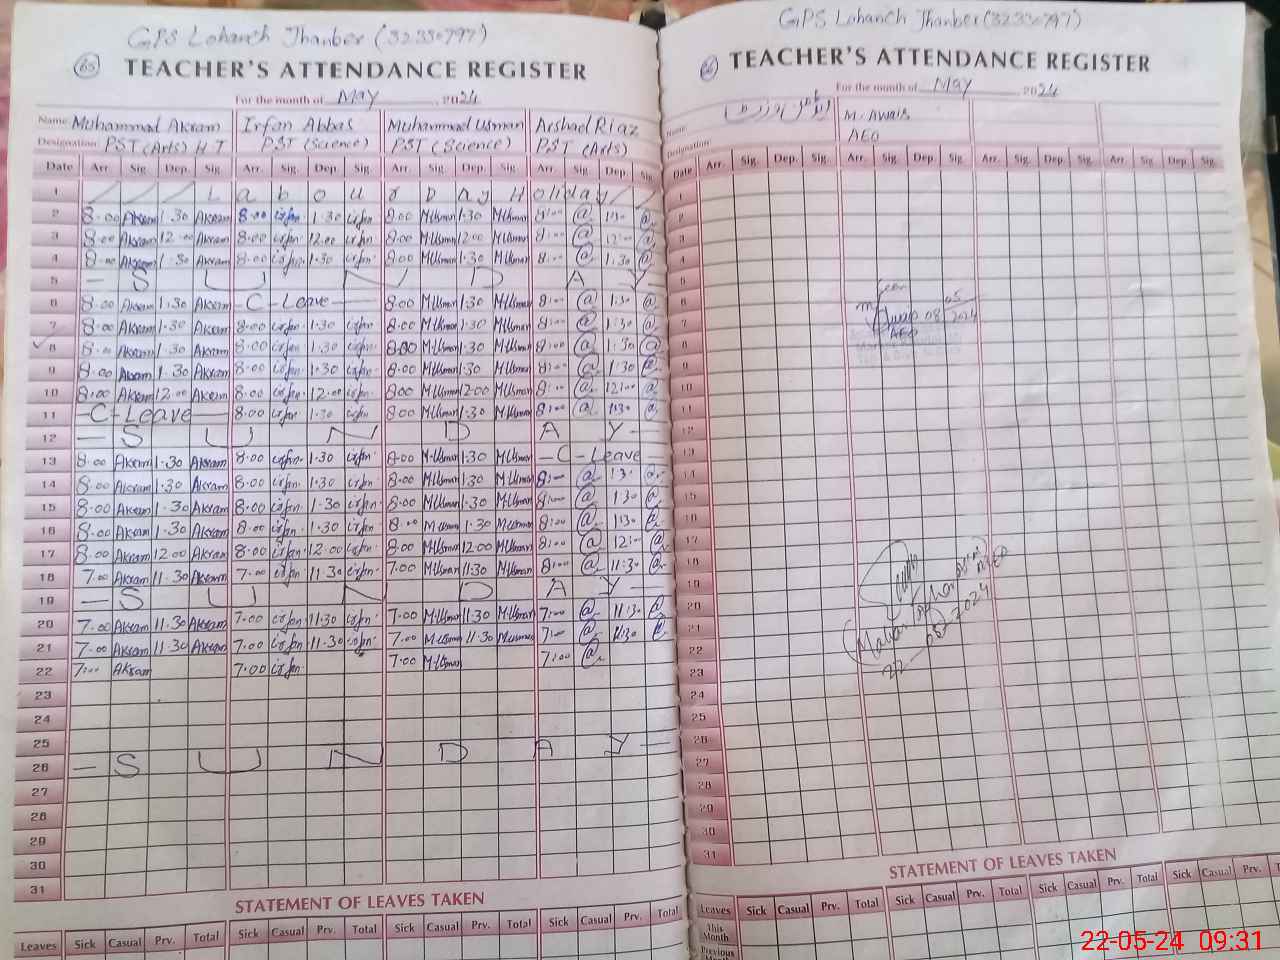 GPS Lohanch Jhanber (32330797)
65 TEACHER'S ATTENDANCE REGISTER
For the month of May, 2024
Name Muhammad Akram Irfan Abbas Muhammad Usman Arshad Riaz
Designation PST (Arts) H T PST (Science) PST (Science) PST (Arts)
Date Arr. Sig. Dep. Sig. Arr. Sig. Dep. Sig. Arr. Sig. Dep. Sig. Arr. Sig. Dep. Sig.
1 L a b o u r D a y H o l i d a y
2 8.00 Akram 1.30 Akram 8.00 irfan 1.30 irfan 8.00 M.Usman 1.30 M.Usman 8:00 1:30
3 8.00 Akram 12.00 Akram 8.00 irfan 12.00 irfan 8.00 M.Usman 12.00 M.Usman 8:00 12:00
4 8.00 Akram 1.30 Akram 8.00 irfan 1.30 irfan 8.00 M.Usman 1.30 M.Usman 8:00 1:30
5 — S U N D A Y —
6 8.00 Akram 1.30 Akram — C - Leave — 8.00 M.Usman 1.30 M.Usman 8:00 1:30
7 8.00 Akram 1.30 Akram 8.00 irfan 1.30 irfan 8.00 M.Usman 1.30 M.Usman 8:00 1:30
8 8.00 Akram 1.30 Akram 8.00 irfan 1.30 irfan 8.00 M.Usman 1.30 M.Usman 8:00 1:30
9 8.00 Akram 1.30 Akram 8.00 irfan 1.30 irfan 8.00 M.Usman 1.30 M.Usman 8:00 1:30
10 8.00 Akram 12.00 Akram 8.00 irfan 12.00 irfan 8.00 M.Usman 12.00 M.Usman 8:00 12:00
11 — C - Leave — 8.00 irfan 1.30 irfan 8.00 M.Usman 1.30 M.Usman 8:00 1:30
12 — S U N D A Y —
13 8.00 Akram 1.30 Akram 8.00 irfan 1.30 irfan 8.00 M.Usman 1.30 M.Usman — C - Leave —
14 8.00 Akram 1.30 Akram 8.00 irfan 1.30 irfan 8.00 M.Usman 1.30 M.Usman 8:00 1:30
15 8.00 Akram 1.30 Akram 8.00 irfan 1.30 irfan 8.00 M.Usman 1.30 M.Usman 8:00 1:30
16 8.00 Akram 1.30 Akram 8.00 irfan 1.30 irfan 8.00 M.Usman 1.30 M.Usman 8:00 1:30
17 8.00 Akram 12.00 Akram 8.00 irfan 12.00 irfan 8.00 M.Usman 12.00 M.Usman 8:00 12:00
18 7.00 Akram 11.30 Akram 7.00 irfan 11.30 irfan 7.00 M.Usman 11.30 M.Usman 8:00 11:30
19 — S U N D A Y —
20 7.00 Akram 11.30 Akram 7.00 irfan 11.30 irfan 7.00 M.Usman 11.30 M.Usman 7:00 11:30
21 7.00 Akram 11.30 Akram 7.00 irfan 11.30 irfan 7.00 M.Usman 11.30 M.Usman 7:00 11:30
22 7:00 Akram 7.00 irfan 7.00 M.Usman 7:00
23
24
25
26 — S U N D A Y —
27
28
29
30
31
STATEMENT OF LEAVES TAKEN
Leaves Sick Casual Prv. Total Sick Casual Prv. Total Sick Casual Prv. Total Sick Casual Prv. Total
GPS Lohanch Jhanber (32330797)
66 TEACHER'S ATTENDANCE REGISTER
For the month of May, 2024
Name M. Awais
Designation AEO
Date Arr. Sig. Dep. Sig. Arr. Sig. Dep. Sig. Arr. Sig. Dep. Sig. Arr. Sig. Dep. Sig.
1
2
3
4
5
6
7
8
AEO
9
10
11
12
13
14
15
16
17
18
19
20
21
22
22-05-2024
23
24
25
26
27
28
29
30
31
STATEMENT OF LEAVES TAKEN
Leaves Sick Casual Prv. Total Sick Casual Prv. Total Sick Casual Prv. Total Sick Casual Prv. Total
This Month
Previous
22-05-24 09:31